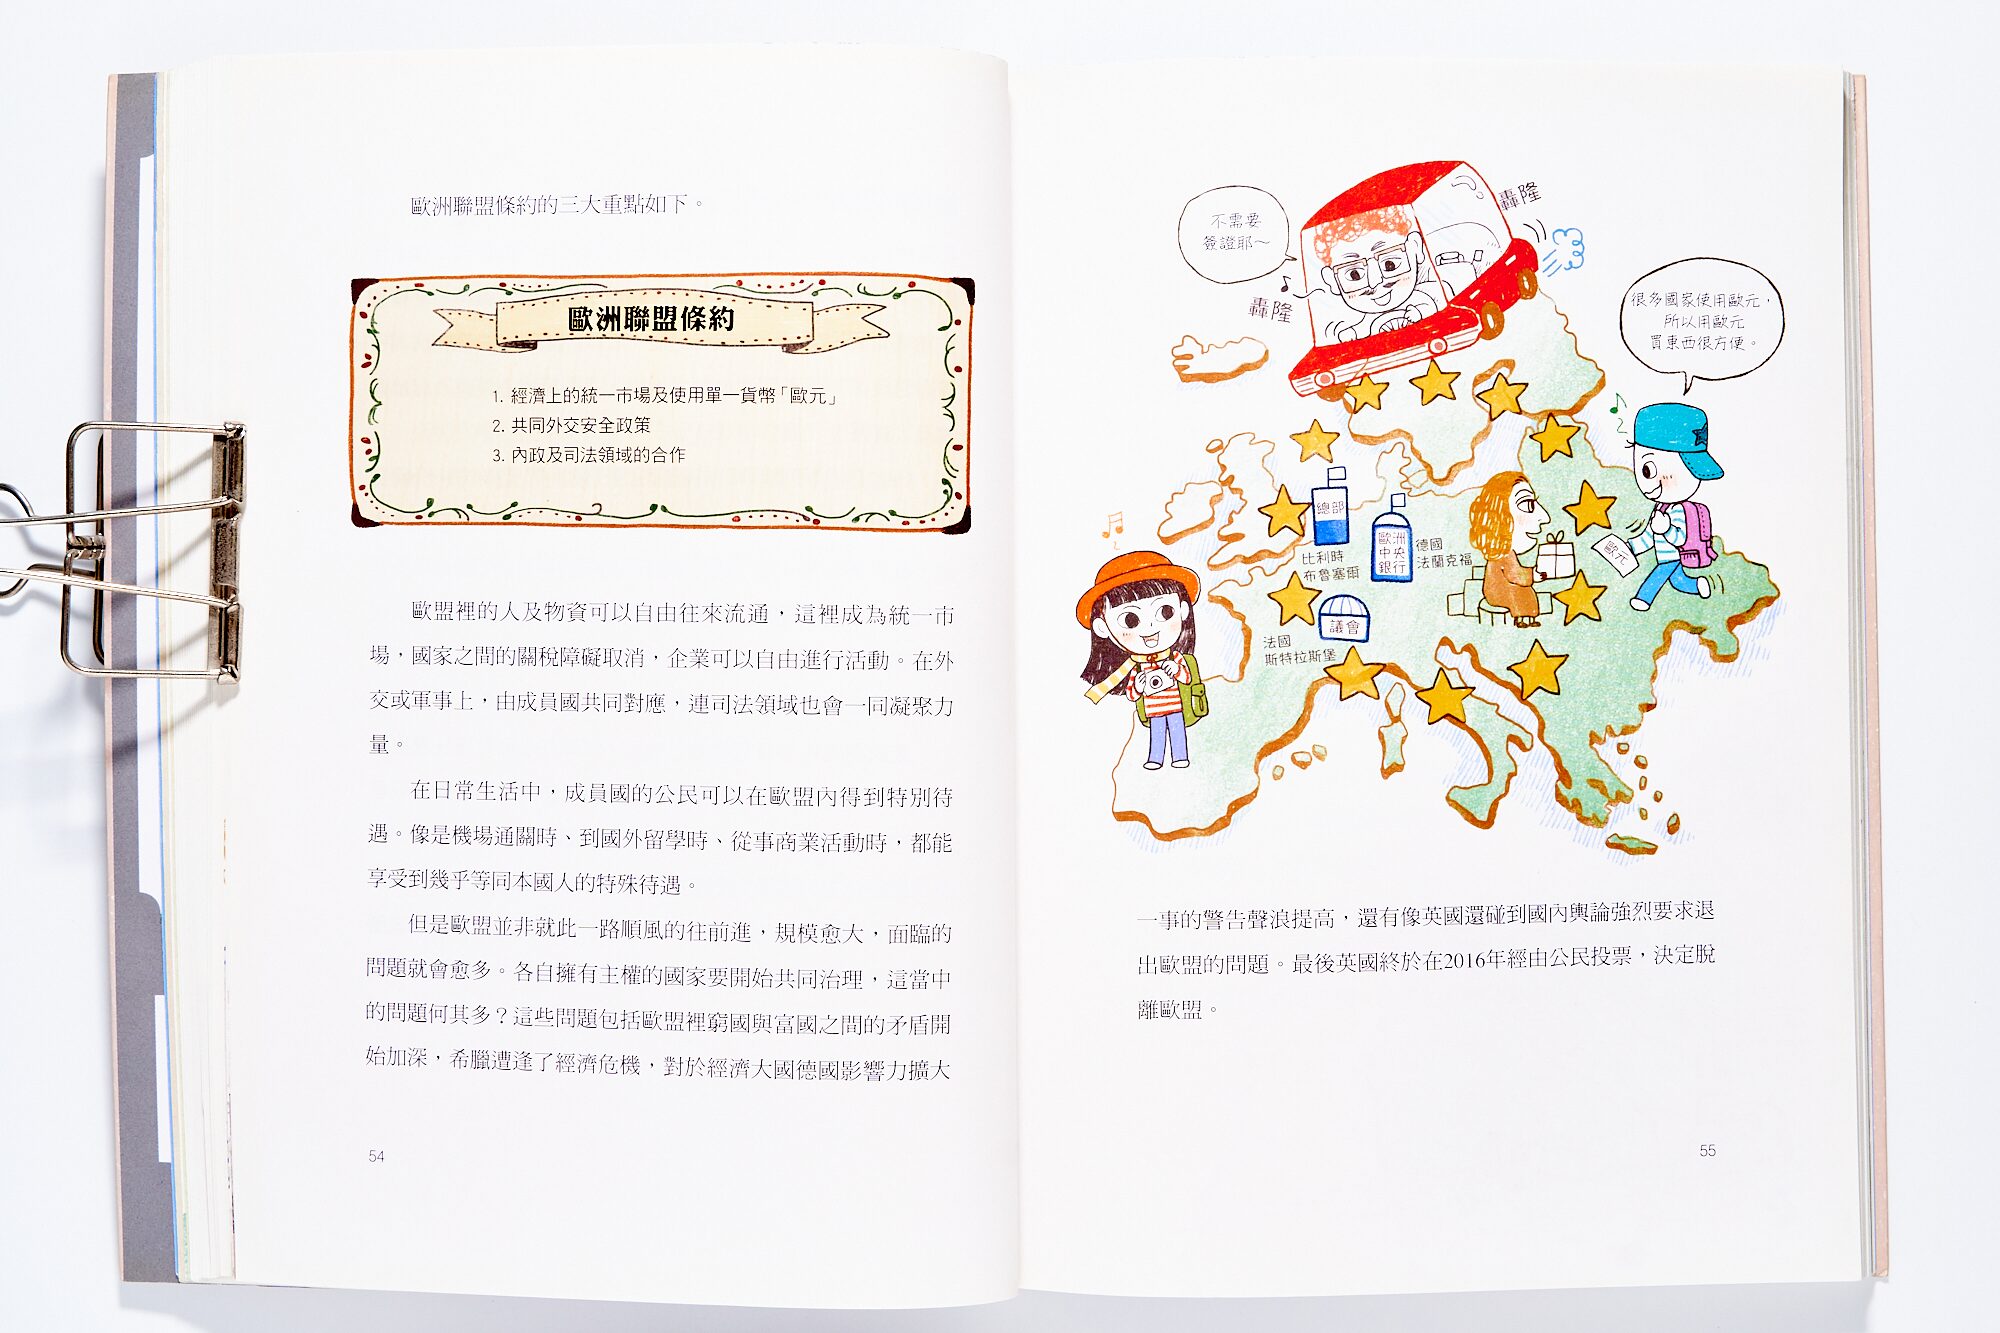 歐洲聯盟條約的三大重點如下。
歐洲聯盟條約
1. 經濟上的統一市場及使用單一貨幣「歐元」
2. 共同外交安全政策
3. 內政及司法領域的合作
歐盟裡的人及物資可以自由往來流通，這裡成為統一市
場，國家之間的關稅障礙取消，企業可以自由進行活動。在外
交或軍事上，由成員國共同對應，連司法領域也會一同凝聚力
量。
在日常生活中，成員國的公民可以在歐盟內得到特別待
遇。像是機場通關時、到國外留學時、從事商業活動時，都能
享受到幾乎等同本國人的特殊待遇。
但是歐盟並非就此一路順風的往前進，規模愈大，面臨的
問題就會愈多。各自擁有主權的國家要開始共同治理，這當中
的問題何其多？這些問題包括歐盟裡窮國與富國之間的矛盾開
始加深，希臘遭逢了經濟危機，對於經濟大國德國影響力擴大
54
不需要
簽證耶～
轟隆
轟隆
很多國家使用歐元，
所以用歐元
買東西很方便。
總部
比利時
布魯塞爾
歐洲
中央
銀行
德國
法蘭克福
歐元
議會
法國
斯特拉斯堡
一事的警告聲浪提高，還有像英國還碰到國內輿論強烈要求退
出歐盟的問題。最後英國終於在2016年經由公民投票，決定脫
離歐盟。
55